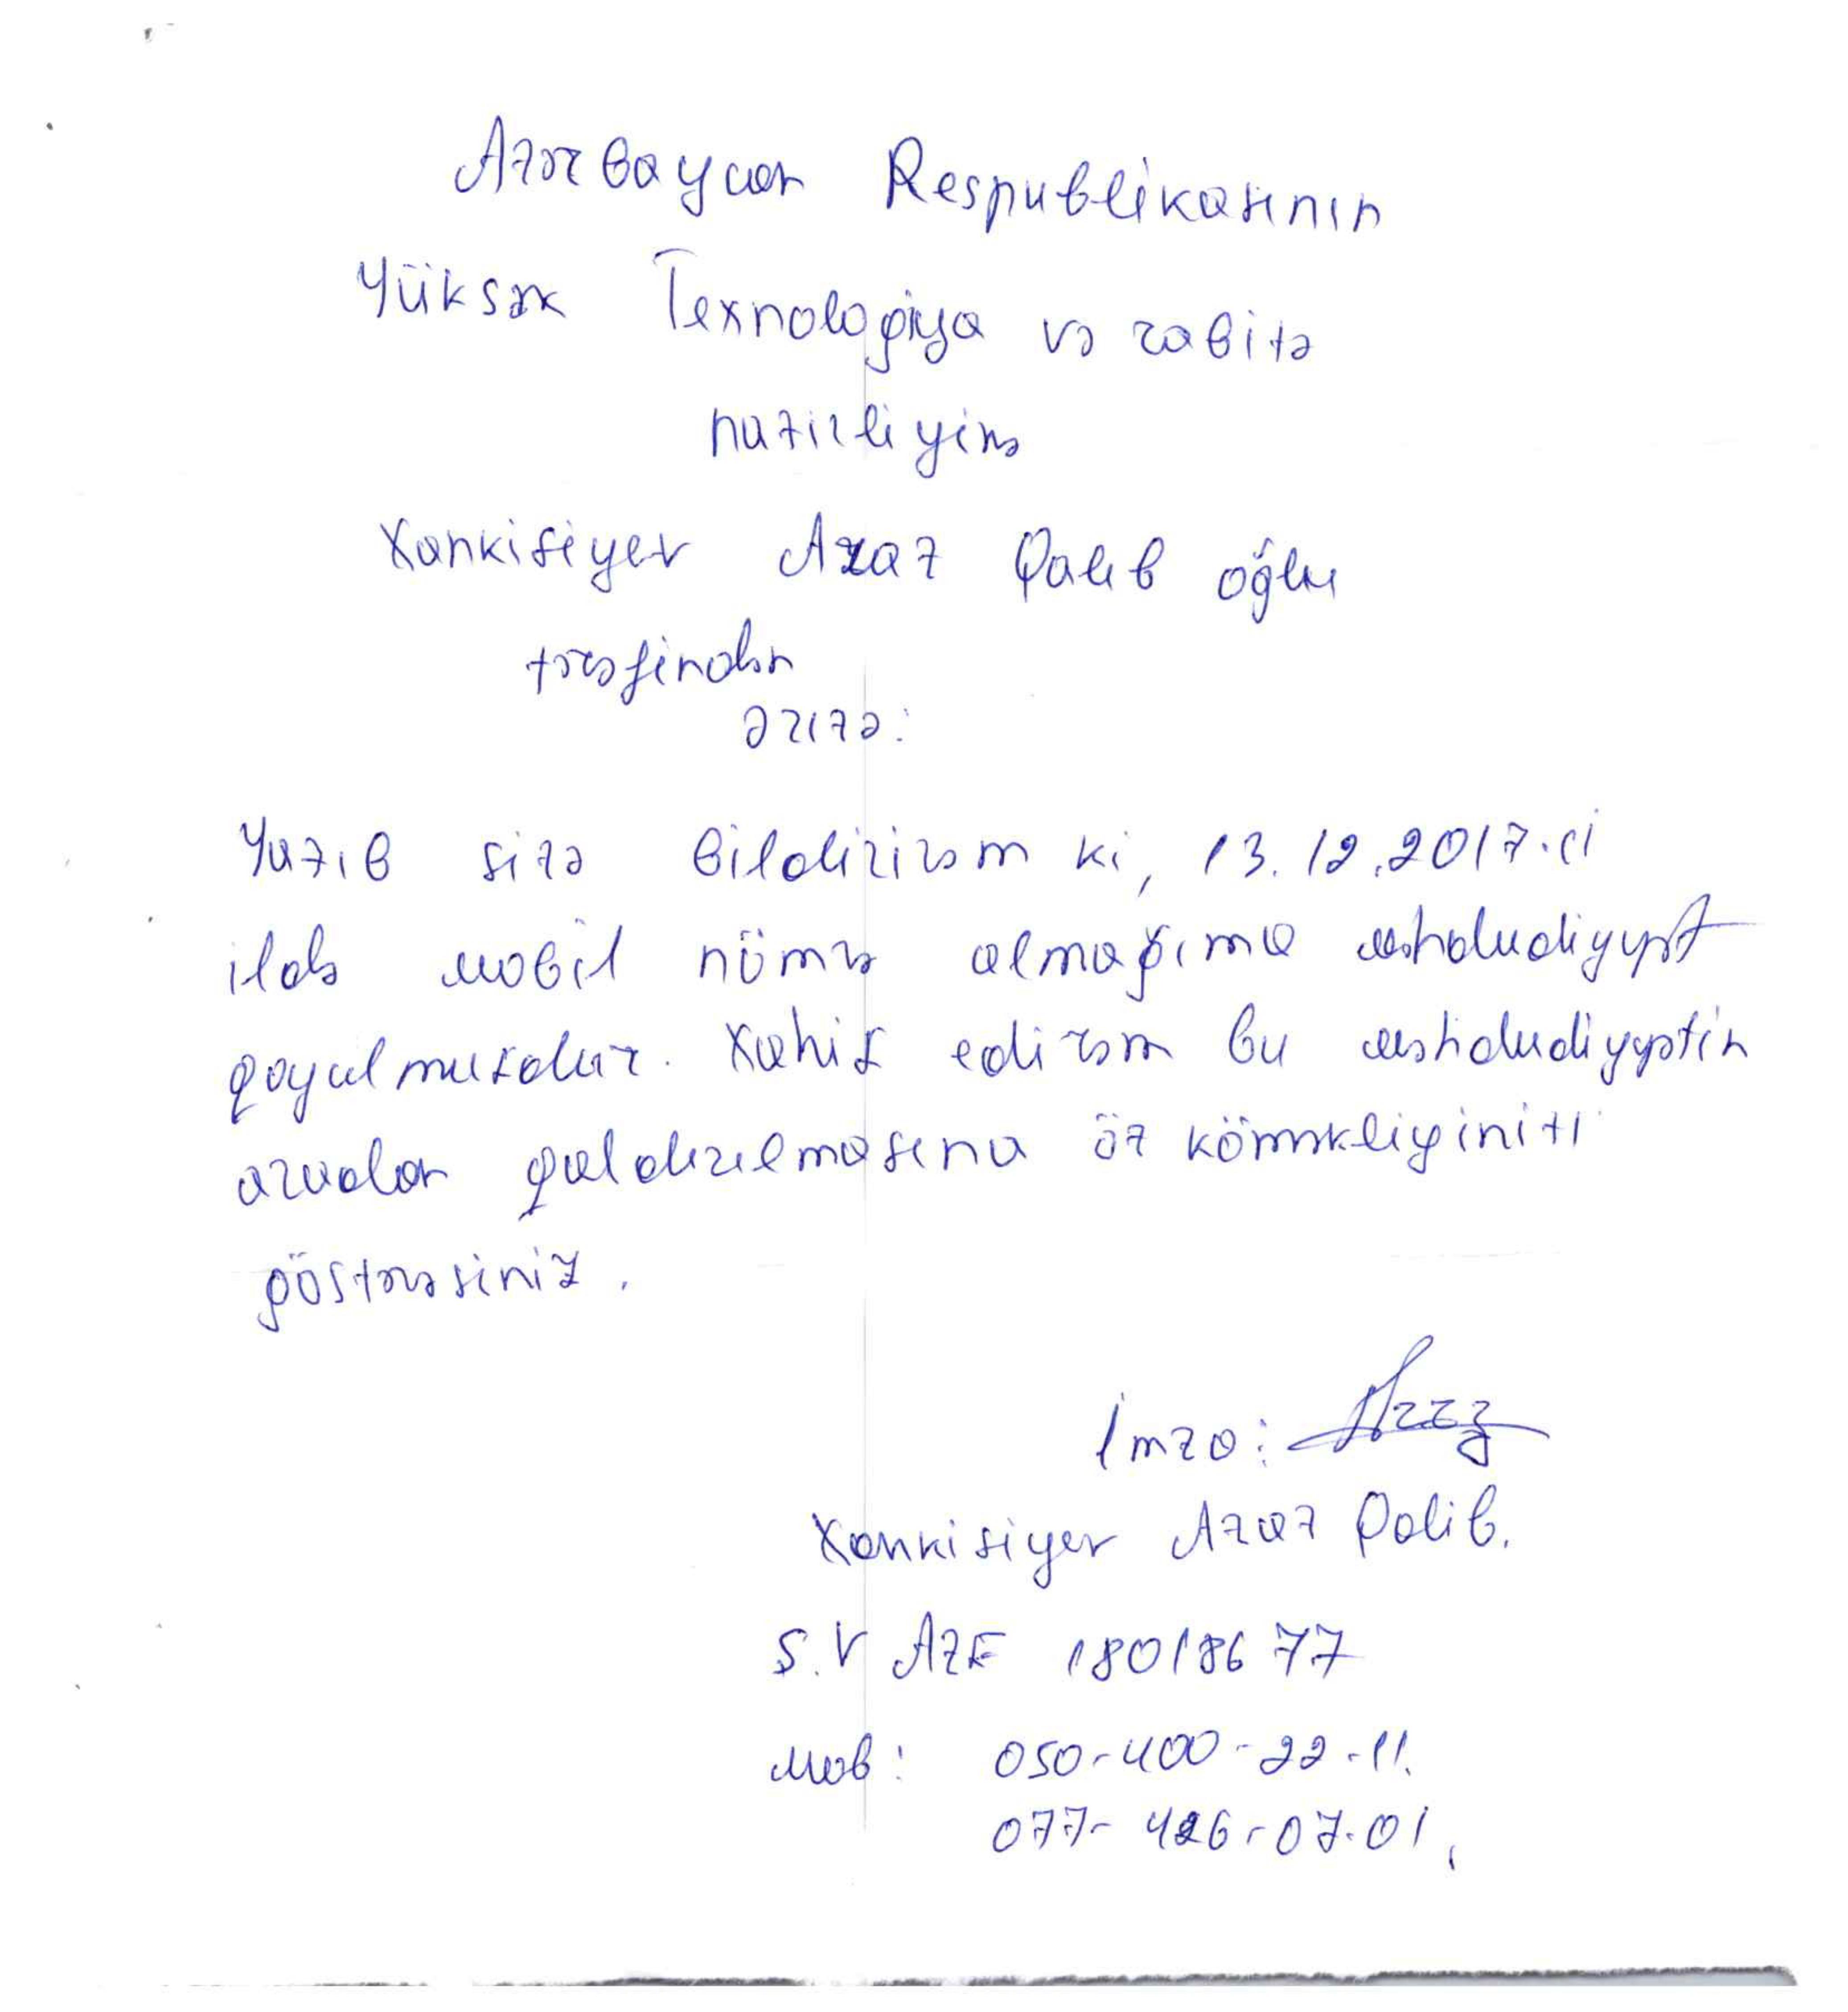 Azərbaycan Respublikasının
Yüksək Texnologiya və rabitə
nazirliyinə
Xankisiyev Araz Qalib oğlu
tərəfindən
ərizə:
Yazıb sizə bildirirəm ki, 13.12.2017.ci
ildə mobil nömrə almağıma məhdudiyyət
qoyulmuşdur. Xahiş edirəm bu məhdudiyyətin
aradan qaldırılmasına öz köməkliyinizi
göstərəsiniz.
İmza:
Xankisiyev Araz Qalib.
Ş.V AZE 18018677
Mob: 050-400-22-11.
077-426-07-01.